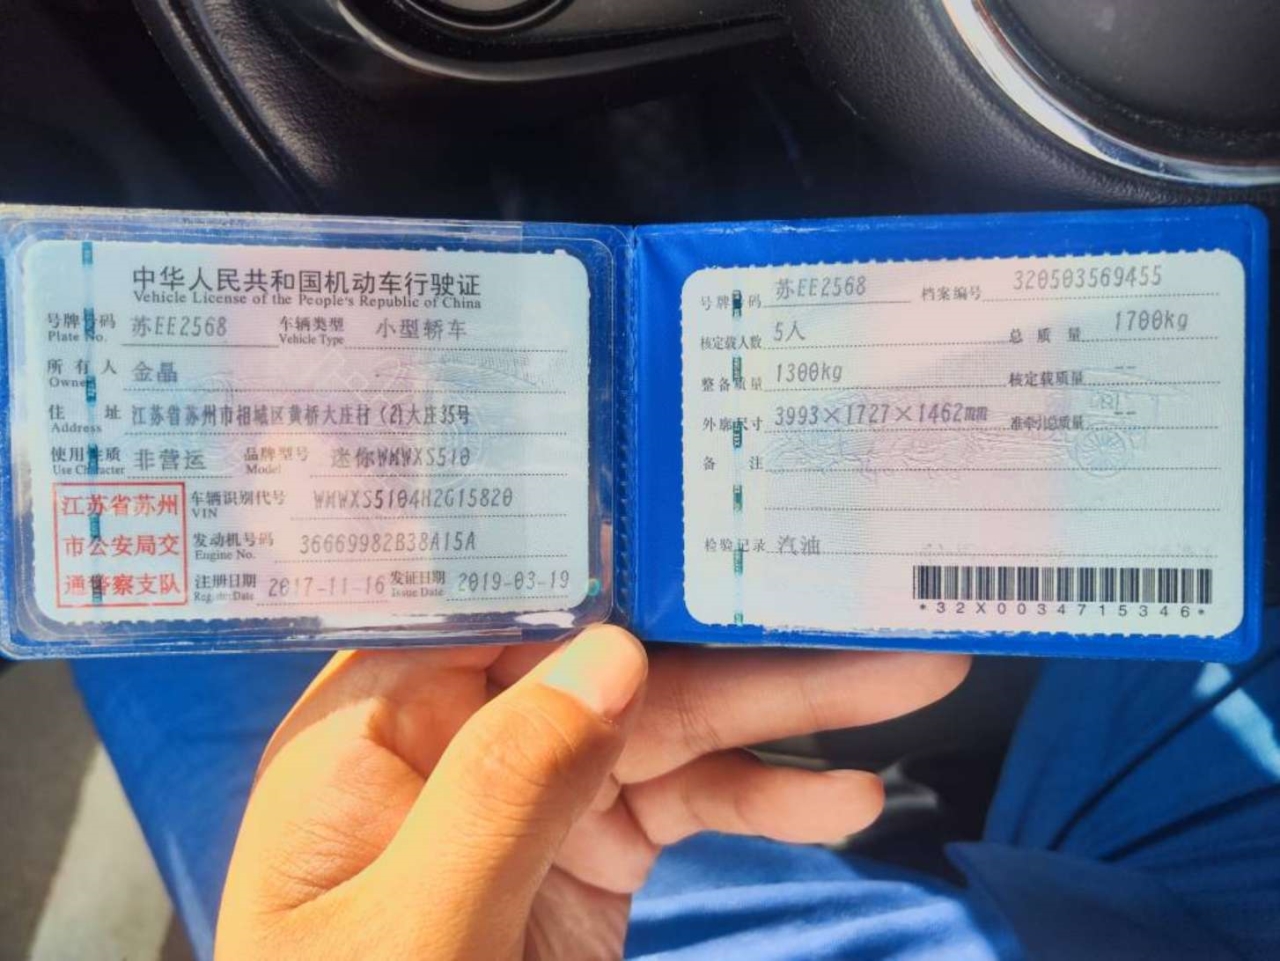 中华人民共和国机动车行驶证
Vehicle License of the People's Republic of China
号牌号码 苏EE2568 车辆类型 小型轿车
Plate No. Vehicle Type
所有人 金晶
Owner
住址 江苏省苏州市相城区黄桥大庄村(2)大庄35号
Address
使用性质 非营运 品牌型号 迷你WMWXS510
Use Character Model
江苏省苏州
市公安局交
通警察支队
车辆识别代号 WMWXS5104H2G15820
VIN
发动机号码 36669982B38A15A
Engine No.
注册日期 2017-11-16 发证日期 2019-03-19
Register Date Issue Date
号牌号码 苏EE2568 档案编号 320503569455
核定载人数 5人 总质量 1700kg
整备质量 1300kg 核定载质量 --
外廓尺寸 3993×1727×1462㎜ 准牵引总质量 --
备注
检验记录 汽油
*32X0034715346*